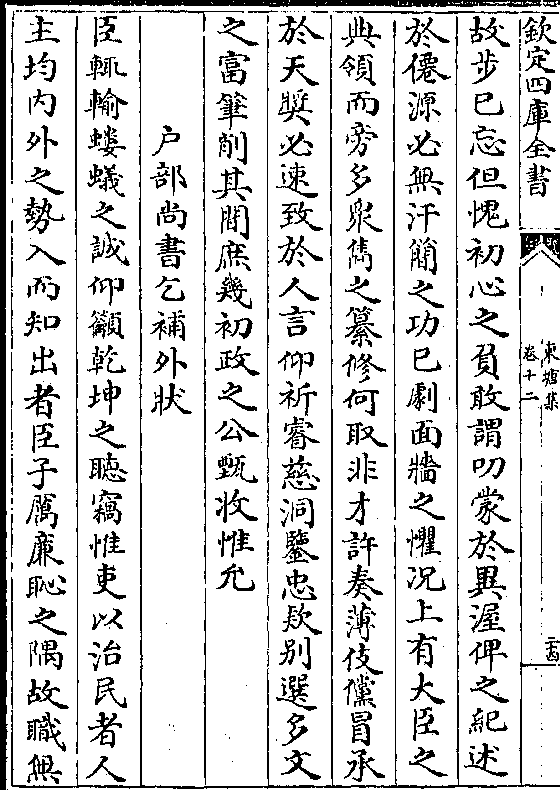 欽定四庫全書
東塘集
卷十二
二十四
故步已忘但愧初心之負敢謂叨蒙於異渥俾之紀述
於僊源必無汗簡之功已劇面牆之懼况上有大臣之
典領而旁多衆儁之纂修何取非才許奏薄伎儻冒承
於天奬必速致於人言仰祈睿慈洞鑒忠欵别選多文
之富筆削其間庶幾初政之公甄收惟允
户部尚書乞補外狀
臣輒輸螻蟻之誠仰籲乾坤之聽竊惟吏以治民者人
主均内外之勢入而知出者臣子厲廉恥之隅故職無